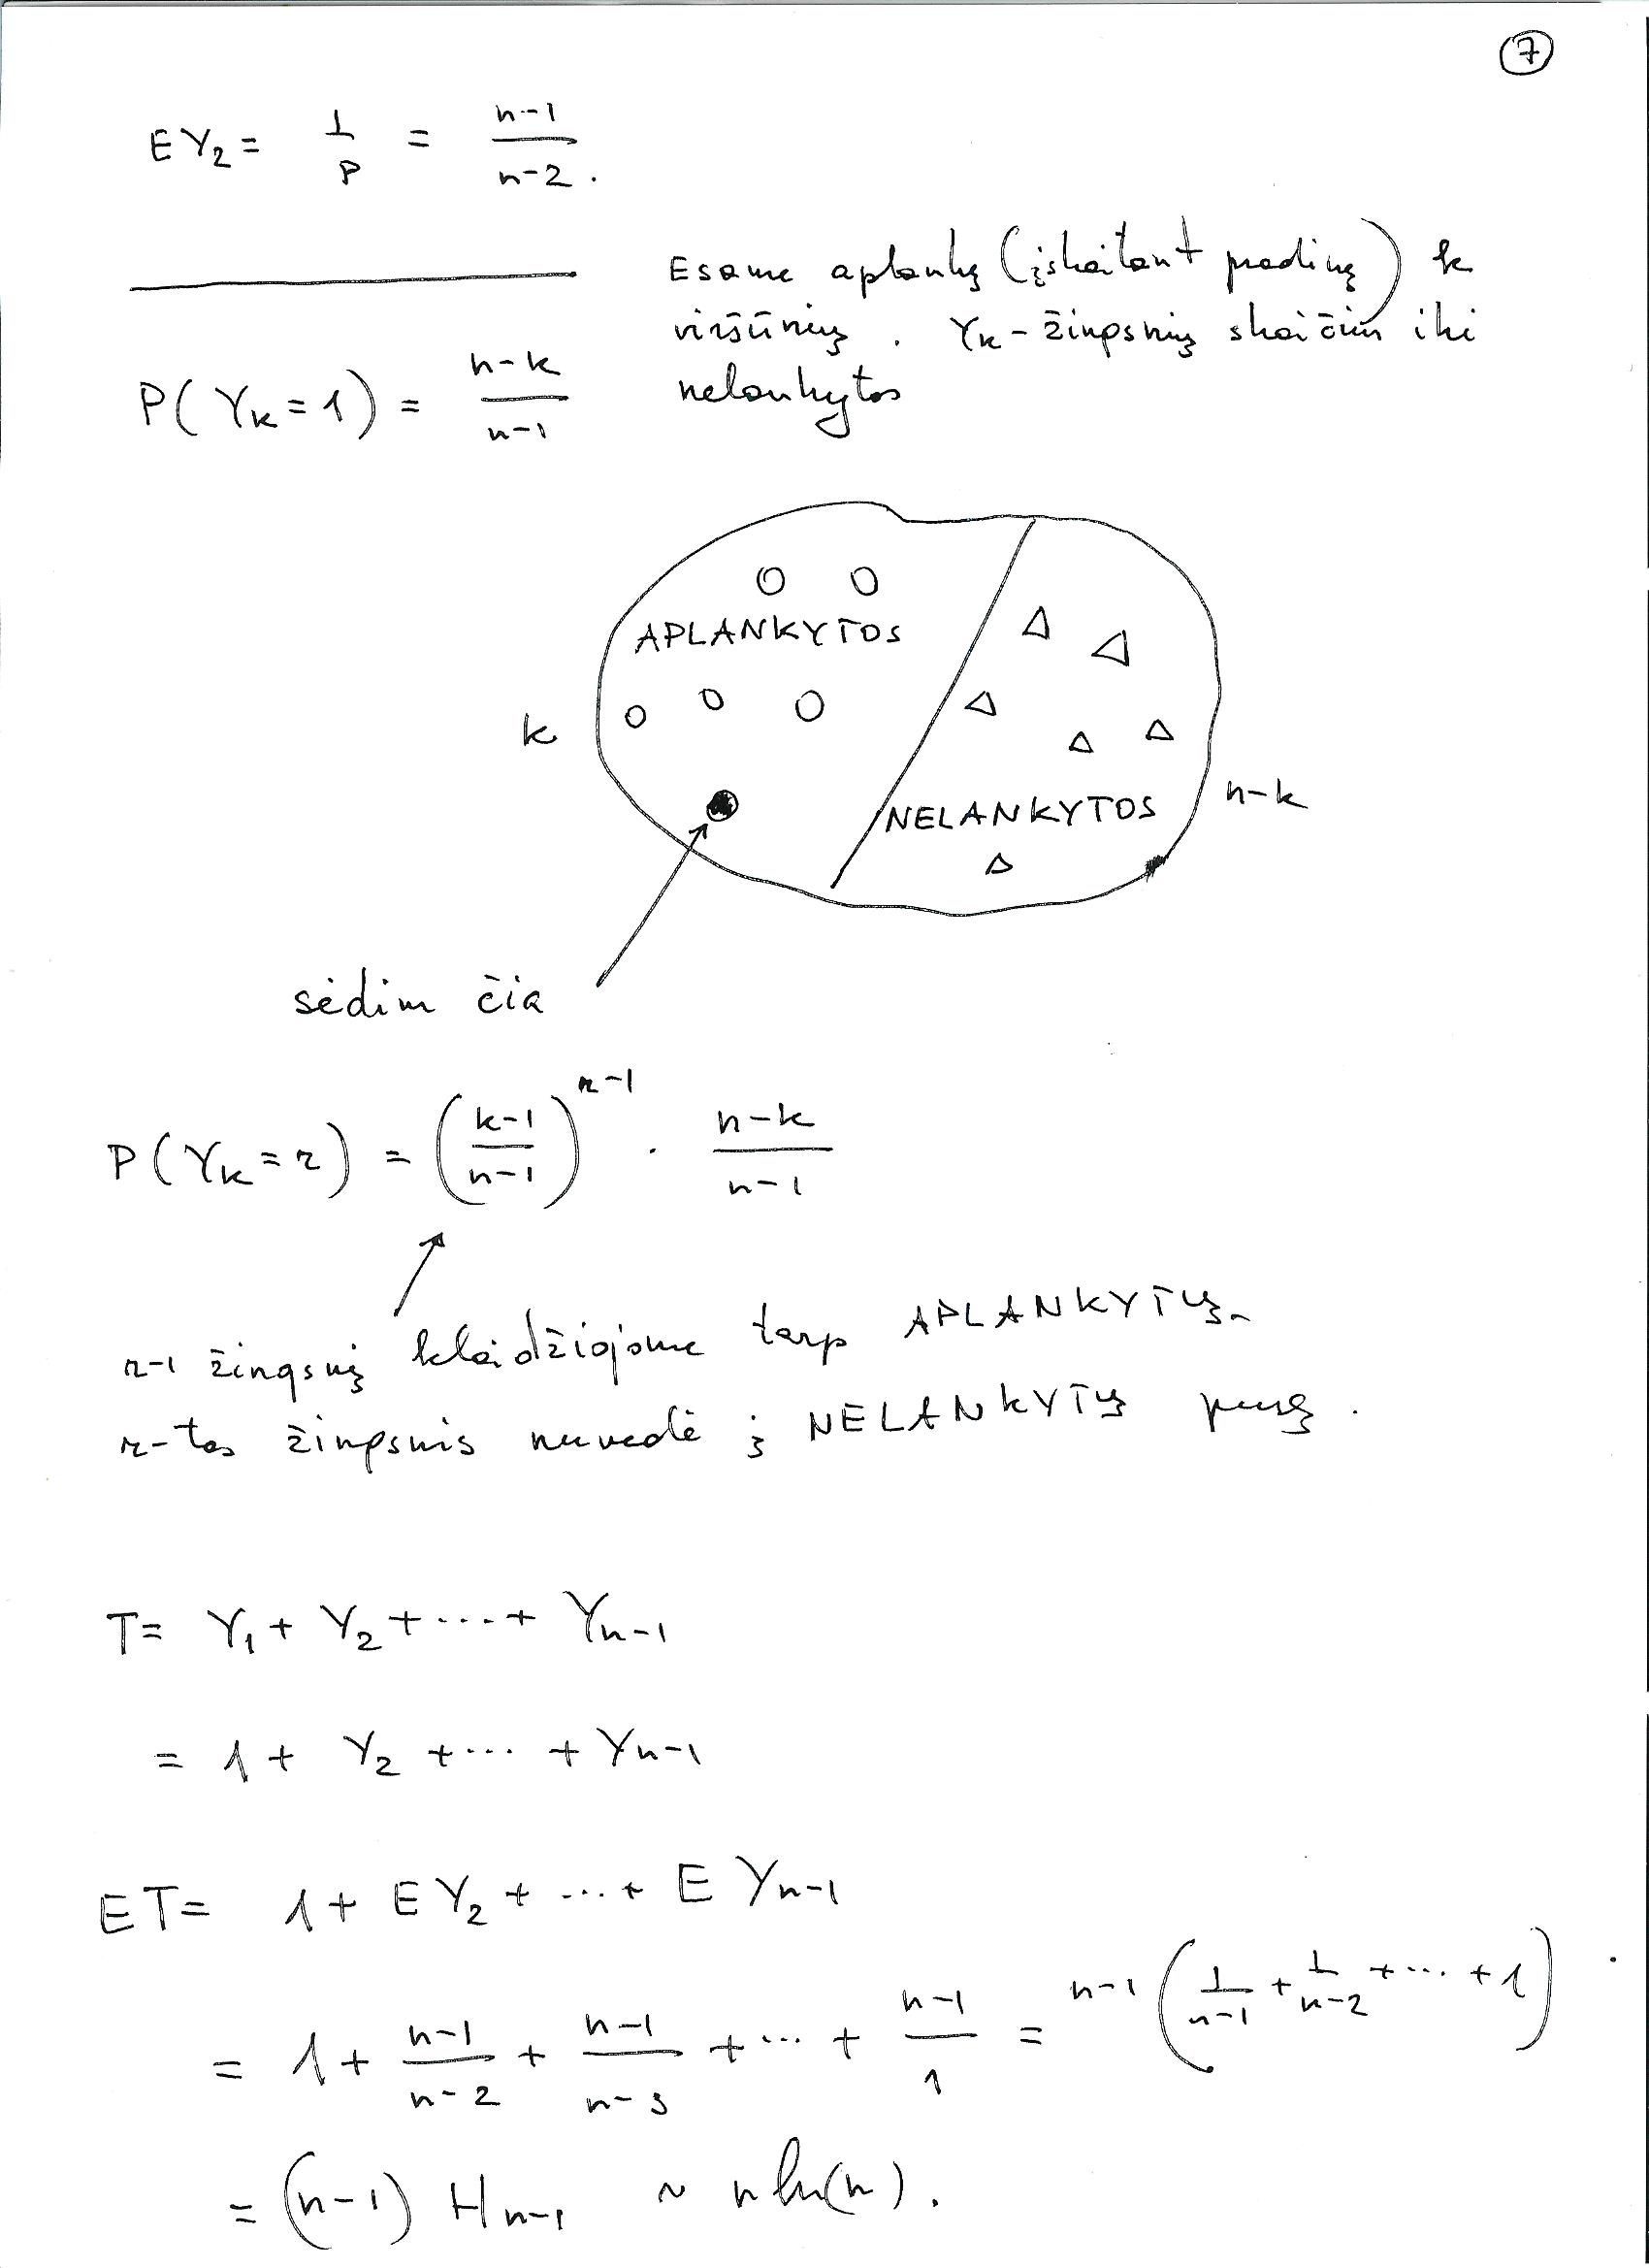 7
EY₂ = 1/p = (n-1)/(n-2).
Esame aplankę (įskaitant pradinę) k
viršūnių. Yₖ - žingsnių skaičius iki
nelankytos
P(Yₖ = 1) = (n-k)/(n-1)
APLANKYTOS
k
NELANKYTOS
n-k
sėdim čia
P(Yₖ = r) = ((k-1)/(n-1))^(r-1) · (n-k)/(n-1)
r-1 žingsnį klaidžiojome tarp APLANKYTŲ.
r-tas žingsnis nuvedė į NELANKYTŲ pusę.
T = Y₁ + Y₂ + ... + Yₙ₋₁
= 1 + Y₂ + ... + Yₙ₋₁
ET = 1 + EY₂ + ... + E Yₙ₋₁
= 1 + (n-1)/(n-2) + (n-1)/(n-3) + ... + (n-1)/1 = n-1 (1/(n-1) + 1/(n-2) + ... + 1).
= (n-1) Hₙ₋₁ ~ n ln(n).